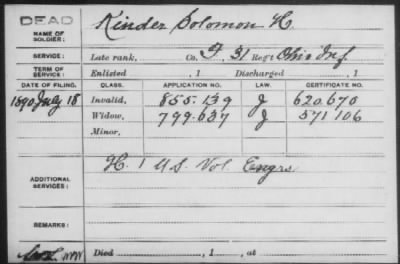 DEAD
NAME OF SOLDIER: Kinder Solomon H.
SERVICE: Late rank, Co. F, 31 Reg't Ohio Inf.
TERM OF SERVICE: Enlisted , 1 Discharged , 1
DATE OF FILING. CLASS. APPLICATION NO. LAW. CERTIFICATE NO.
1890 July 18 Invalid, 855.139 J 620.670
Widow, 799.637 J 571106
Minor,
ADDITIONAL SERVICES: H. 1 U.S. Vol. Engrs
REMARKS:
Died , 1 , at